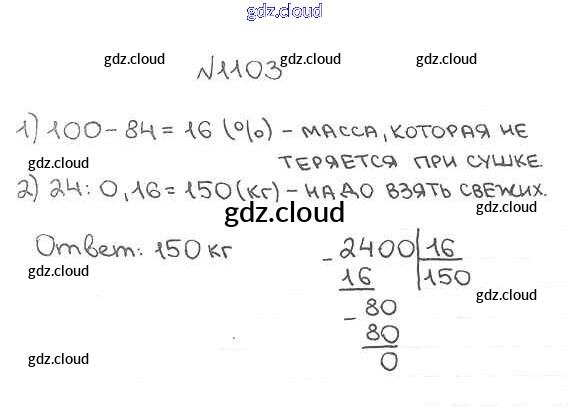 gdz.cloud
gdz.cloud gdz.cloud gdz.cloud
№1103
1) 100 - 84 = 16 (%) - МАССА, КОТОРАЯ НЕ
ТЕРЯЕТСЯ ПРИ СУШКЕ.
gdz.cloud gdz.cloud
2) 24 : 0,16 = 150 (кг) - НАДО ВЗЯТЬ СВЕЖИХ.
gdz.cloud
Ответ: 150 кг
- 2400 | 16
16 150
gdz.cloud gdz.cloud
- 80
80
0
gdz.cloud gdz.cloud